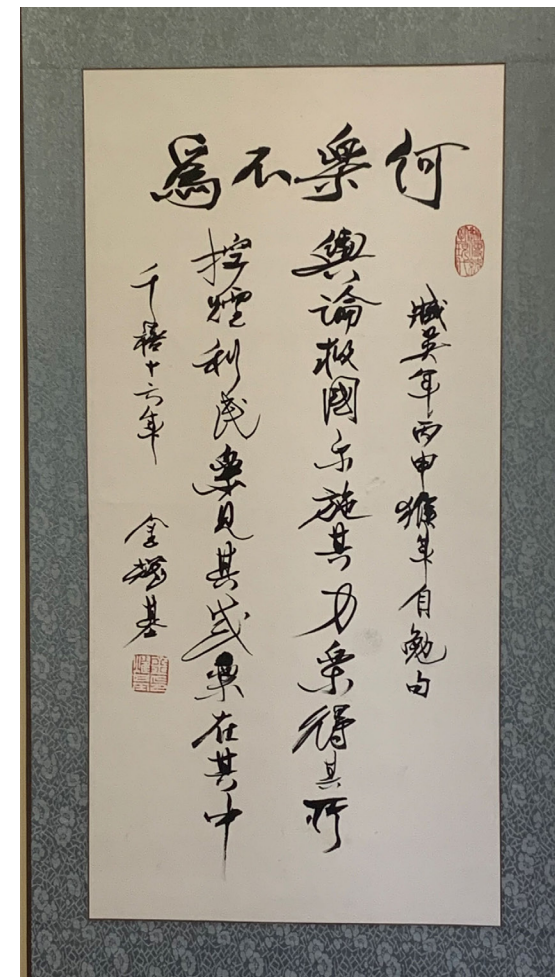 何樂不為
臧英年丙申猴年自勉句
輿論救國尔施其力樂得其所
控煙利民樂見其成樂在其中
千禧十六年 金耀基